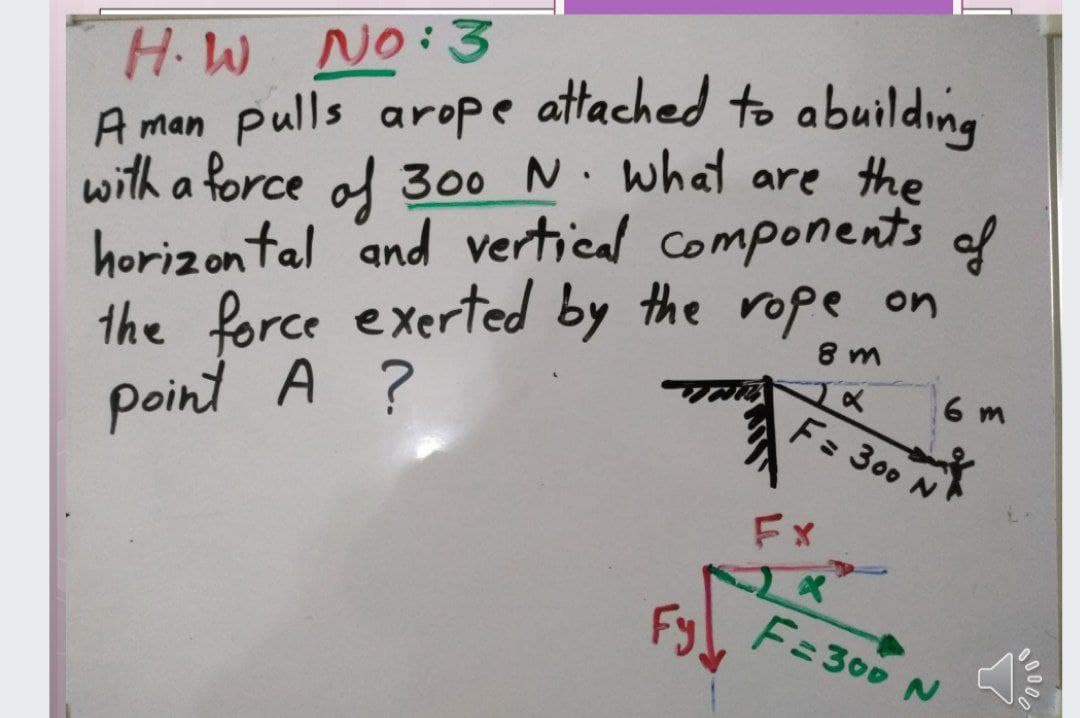 H.W NO:3
A man pulls arope attached to abuilding
with a force of 300 N. what are the
horizontal and vertical components of
the force exerted by the rope on
point A ?
8 m
α
6 m
F = 300 N
Fx
α
Fy
F = 300 N